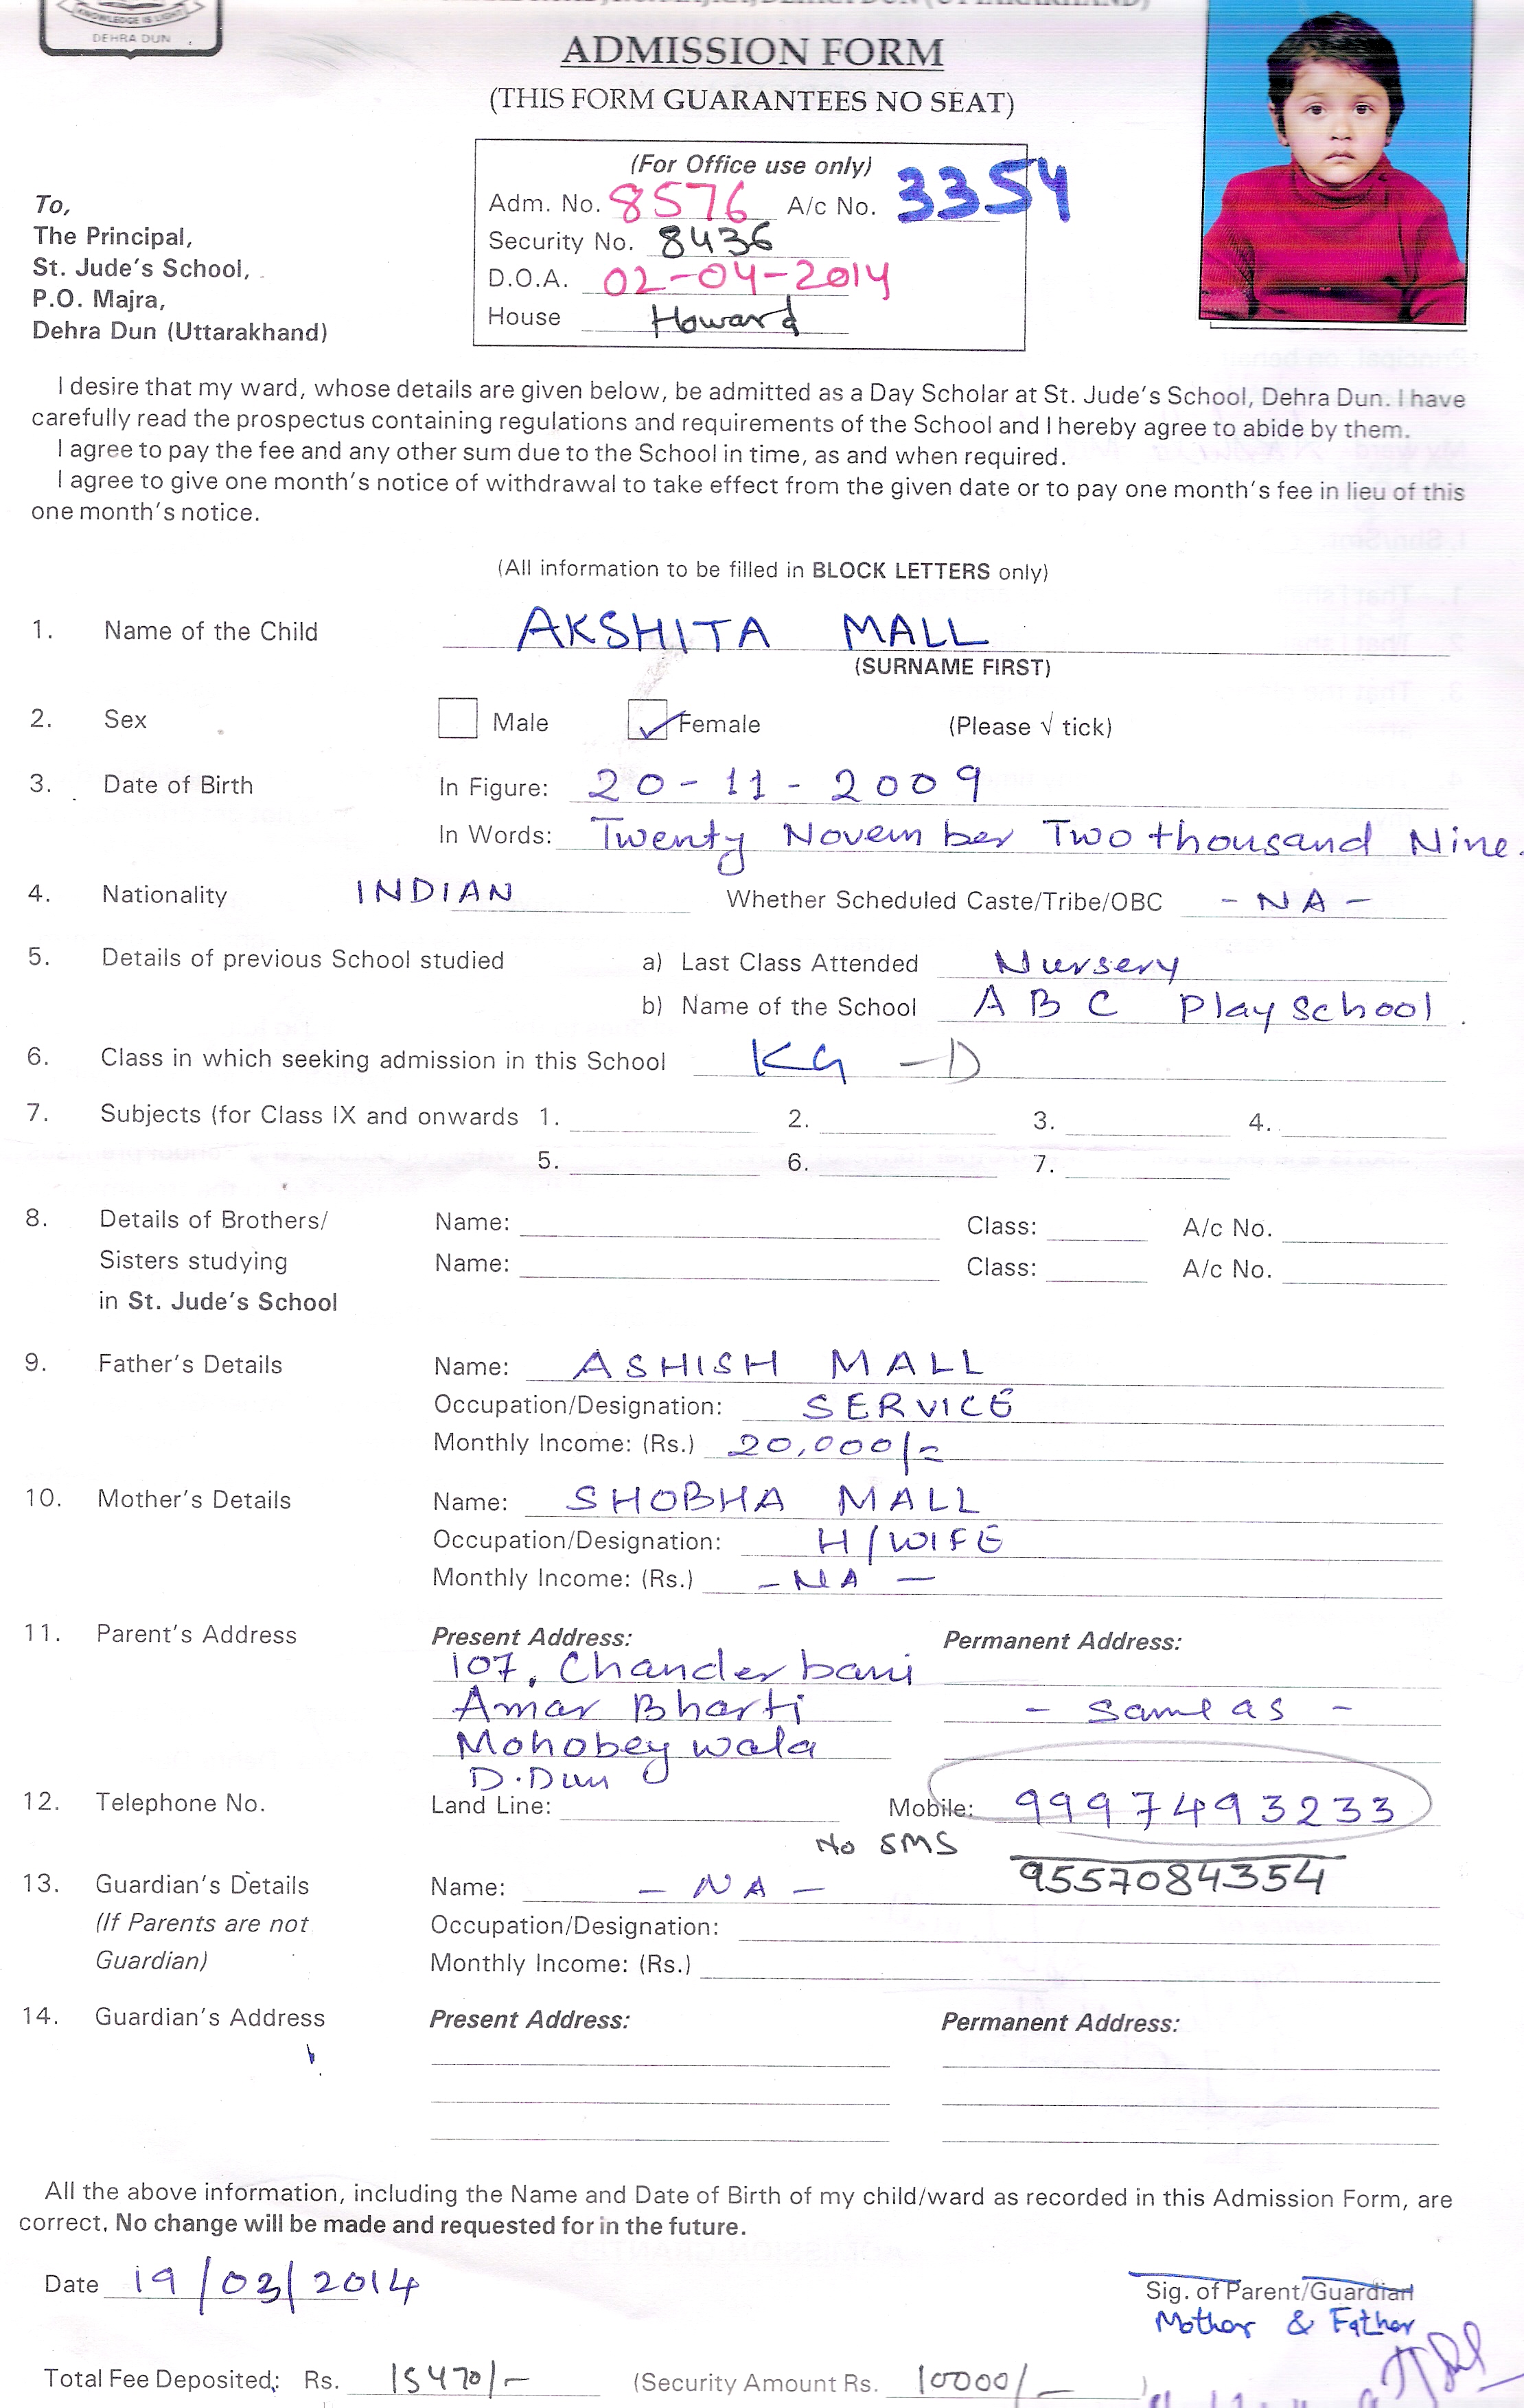 KNOWLEDGE IS LIGHT
DEHRA DUN
ADMISSION FORM
(THIS FORM GUARANTEES NO SEAT)
(For Office use only)
Adm. No. 8576 A/c No. 3354
Security No. 8436
D.O.A. 02-04-2014
House Howard
To,
The Principal,
St. Jude's School,
P.O. Majra,
Dehra Dun (Uttarakhand)
I desire that my ward, whose details are given below, be admitted as a Day Scholar at St. Jude's School, Dehra Dun. I have
carefully read the prospectus containing regulations and requirements of the School and I hereby agree to abide by them.
I agree to pay the fee and any other sum due to the School in time, as and when required.
I agree to give one month's notice of withdrawal to take effect from the given date or to pay one month's fee in lieu of this
one month's notice.
(All information to be filled in BLOCK LETTERS only)
1. Name of the Child AKSHITA MALL
(SURNAME FIRST)
2. Sex Male Female (Please √ tick)
3. Date of Birth In Figure: 20-11-2009
In Words: Twenty November Two thousand Nine.
4. Nationality INDIAN Whether Scheduled Caste/Tribe/OBC - NA -
5. Details of previous School studied a) Last Class Attended Nursery
b) Name of the School A B C Play School.
6. Class in which seeking admission in this School KG - D
7. Subjects (for Class IX and onwards 1. 2. 3. 4.
5. 6. 7.
8. Details of Brothers/ Name: Class: A/c No.
Sisters studying Name: Class: A/c No.
in St. Jude's School
9. Father's Details Name: ASHISH MALL
Occupation/Designation: SERVICE
Monthly Income: (Rs.) 20,000/=
10. Mother's Details Name: SHOBHA MALL
Occupation/Designation: H/WIFE
Monthly Income: (Rs.) - NA -
11. Parent's Address Present Address: Permanent Address:
107, Chanderbani
Amar Bharti - same as -
Mohobeywala
D.Dun
12. Telephone No. Land Line: Mobile: 9997493233
No SMS 9557084354
13. Guardian's Details Name: - NA -
(If Parents are not Occupation/Designation:
Guardian) Monthly Income: (Rs.)
14. Guardian's Address Present Address: Permanent Address:
All the above information, including the Name and Date of Birth of my child/ward as recorded in this Admission Form, are
correct. No change will be made and requested for in the future.
Date 19/03/2014 Sig. of Parent/Guardian
Mother & Father
Total Fee Deposited: Rs. 15470/- (Security Amount Rs. 10000/- )